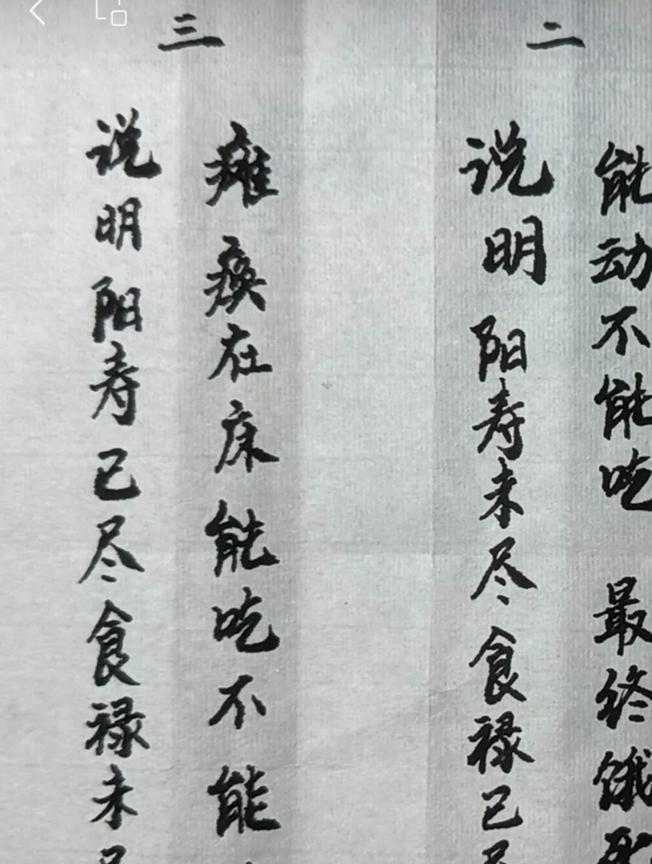 二
能动不能吃 最终饿死
说明阳寿未尽食禄已尽
三
瘫痪在床能吃不能
说明阳寿已尽食禄未